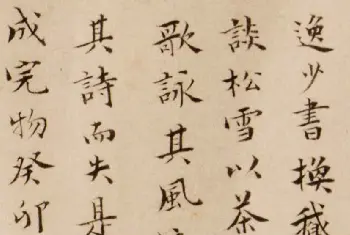 逸少書換鵝
談松雪以茶
歌詠其風
其詩而失是
成完物癸卯